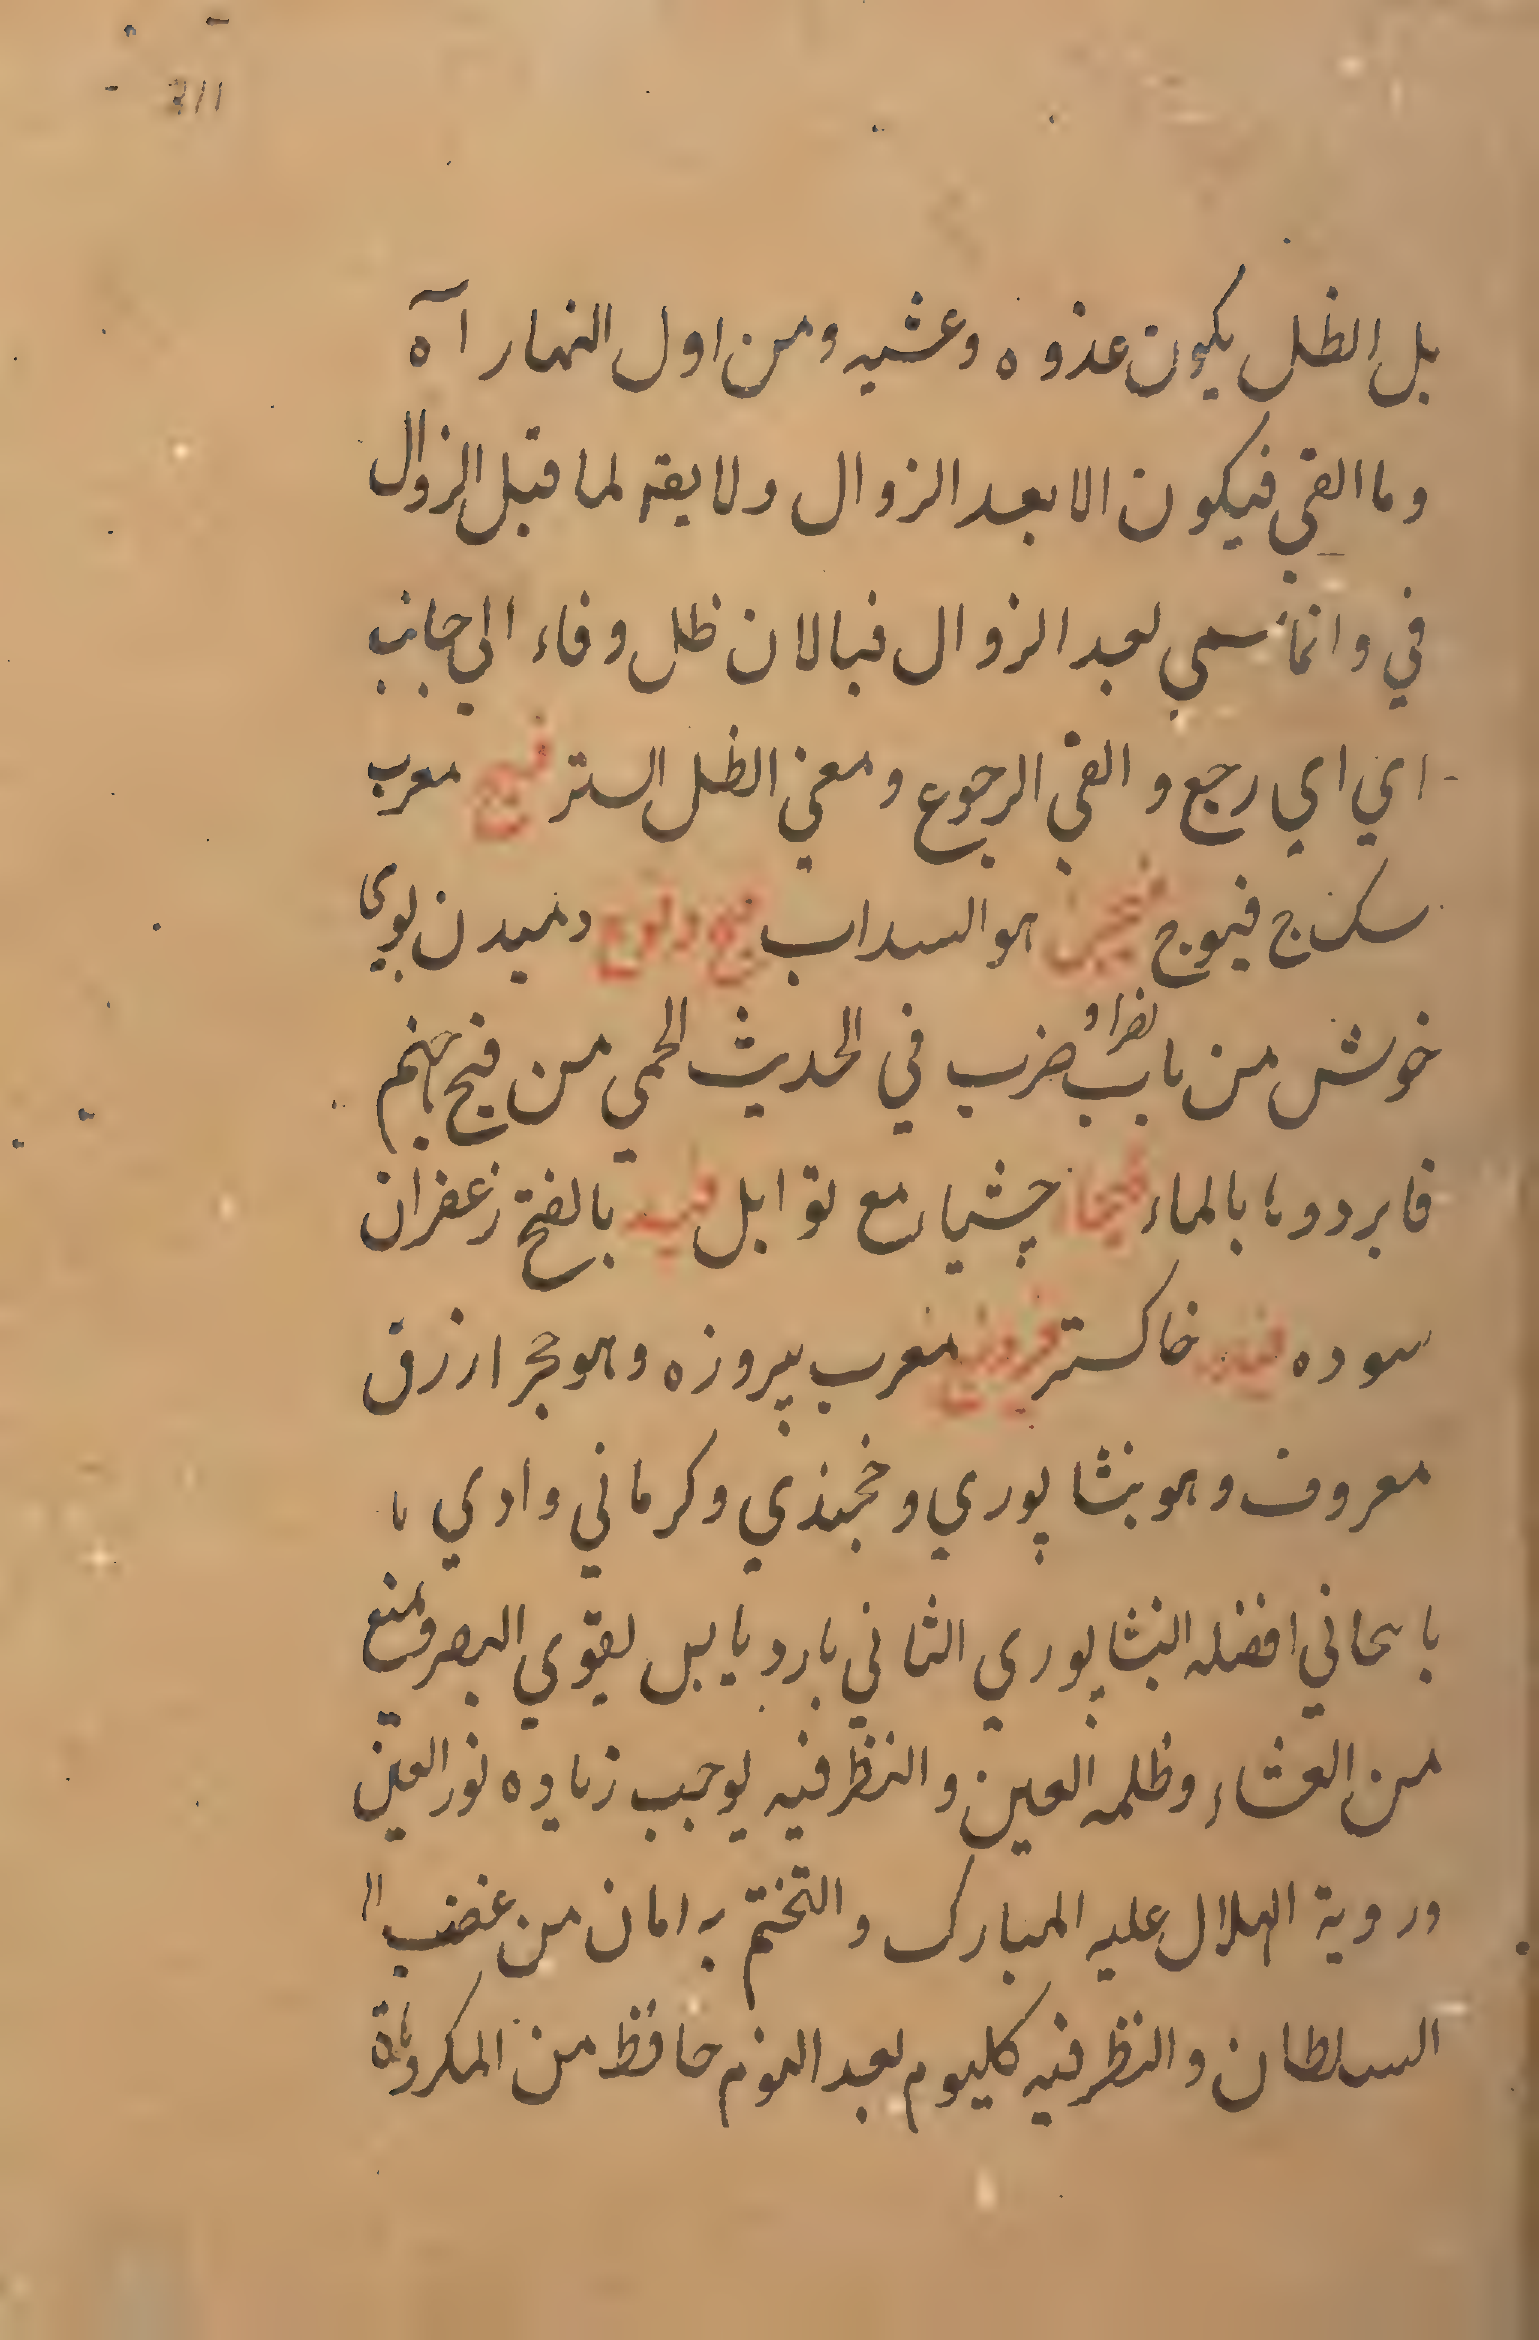 بل الظل يكون عذوه وعشيه ومن اول النهار اه
وما الفي فيكون الا بعد الزوال ولا يقه لما قبل الزوال
في وانما سمي بعد الزوال فبالان ظل وفاء الي جانب
اي اي رجع و الفي الرجوع ومعني الظل الستر فيج معرب
سك ج فيوج فيجن هو السداب فيح و فوح دميدن بوي
خوش من باب نصر او ضرب في الحديث الحمي من فيح جهنم
فابردوها بالماء فيحا چشيار مع توابل فيد بالفتح زعفران
سوده خاكستر فيروزج معرب پيروزه وهو حجر ازرق
معروف وهو نشاپوري وخجندي وكرماني وادي با
با سحاني افضله النشاپوري الثاني بارد يابس يقوي البصر ومنع
من العشاء وظلمه العين والنظر فيه يوجب زياده نور العين
وروية الهلال عليه المبارك والتختم به امان من غضب ال
السلطان والنظر فيه كليوم بعد النوم حافظ من المكروهاة